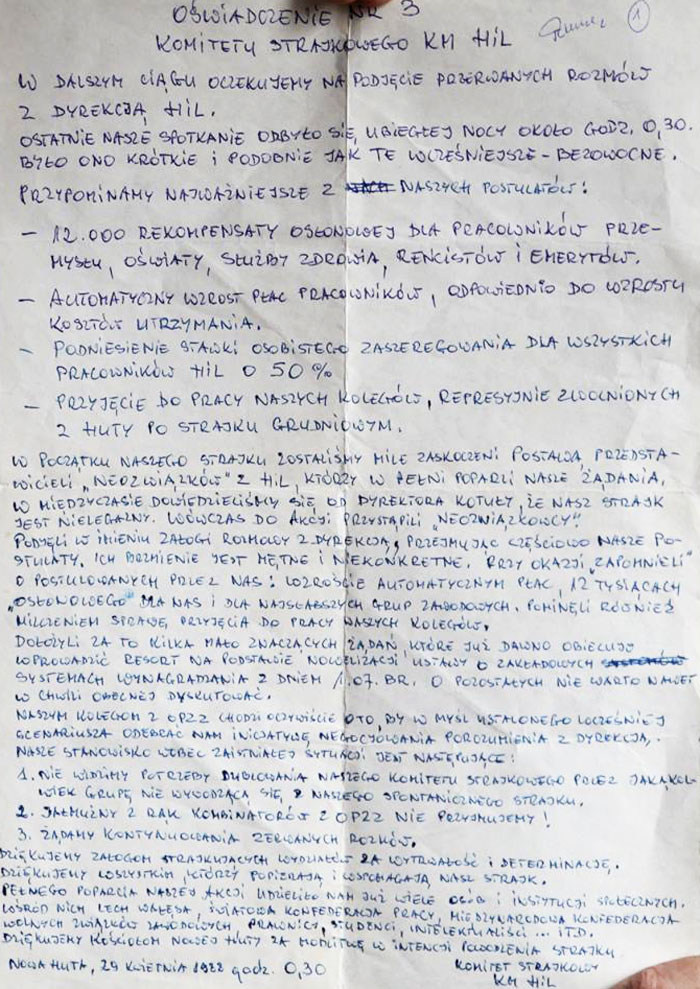 OŚWIADCZENIE NR 3
1
KOMITETU STRAJKOWEGO KM HiL
W DALSZYM CIĄGU OCZEKUJEMY NA PODJĘCIE PRZERWANYCH ROZMÓW
Z DYREKCJĄ HiL.
OSTATNIE NASZE SPOTKANIE ODBYŁO SIĘ UBIEGŁEJ NOCY OKOŁO GODZ. 0,30.
BYŁO ONO KRÓTKIE i PODOBNIE JAK TE WCZEŚNIEJSZE - BEZOWOCNE.
PRZYPOMINAMY NAJWAŻNIEJSZE Z NASZYCH POSTULATÓW:
- 12.000 REKOMPENSATY OSŁONOWEJ DLA PRACOWNIKÓW PRZE-
MYSŁU, OŚWIATY, SŁUŻBY ZDROWIA, RENCISTÓW i EMERYTÓW.
- AUTOMATYCZNY WZROST PŁAC PRACOWNIKÓW, ODPOWIEDNIO DO WZROSTU
KOSZTÓW UTRZYMANIA.
- PODNIESIENIE STAWKI OSOBISTEGO ZASZEREGOWANIA DLA WSZYSTKICH
PRACOWNIKÓW HiL O 50%
- PRZYJĘCIE DO PRACY NASZYCH KOLEGÓW, REPRESYJNIE ZWOLNIONYCH
Z HUTY PO STRAJKU GRUDNIOWYM.
W POCZĄTKU NASZEGO STRAJKU ZOSTALIŚMY MILE ZASKOCZENI POSTAWĄ PRZEDSTA-
WICIELI „NEOZWIĄZKÓW" Z HiL, KTÓRZY W PEŁNI POPARLI NASZE ŻĄDANIA.
W MIĘDZYCZASIE DOWIEDZIELIŚMY SIĘ OD DYREKTORA KOTUŁY, ŻE NASZ STRAJK
JEST NIELEGALNY. WÓWCZAS DO AKCJI PRZYSTĄPILI „NEOZWIĄZKOWCY".
PODJĘLI W IMIENIU ZAŁOGI ROZMOWY Z DYREKCJĄ, PRZEJMUJĄC CZĘŚCIOWO NASZE PO-
STULATY. ICH BRZMIENIE JEST MĘTNE i NIEKONKRETNE. PRZY OKAZJI „ZAPOMNIELI"
O POSTULOWANYCH PRZEZ NAS: WZROŚCIE AUTOMATYCZNYM PŁAC, 12 TYSIĄCACH
„OSŁONOWEGO" DLA NAS i DLA NAJSŁABSZYCH GRUP ZAWODOWYCH. POMINĘLI RÓWNIEŻ
MILCZENIEM SPRAWĘ PRZYJĘCIA DO PRACY NASZYCH KOLEGÓW.
DOŁOŻYLI ZA TO KILKA MAŁO ZNACZĄCYCH ŻĄDAŃ, KTÓRE JUŻ DAWNO OBIECUJE
WPROWADZIĆ RESORT NA PODSTAWIE NOWELIZACJI USTAWY O ZAKŁADOWYCH
SYSTEMACH WYNAGRADZANIA Z DNIEM 1.07. BR. O POZOSTAŁYCH NIE WARTO NAWET
W CHWILI OBECNEJ DYSKUTOWAĆ.
NASZYM KOLEGOM Z OPZZ CHODZI OCZYWIŚCIE O TO, BY W MYŚL USTALONEGO WCZEŚNIEJ
SCENARIUSZA ODEBRAĆ NAM INICJATYWĘ NEGOCJOWANIA POROZUMIENIA Z DYREKCJĄ.
NASZE STANOWISKO WOBEC ZAISTNIAŁEJ SYTUACJI JEST NASTĘPUJĄCE:
1. NIE WIDZIMY POTRZEBY DUBLOWANIA NASZEGO KOMITETU STRAJKOWEGO PRZEZ JAKĄKOL-
WIEK GRUPĘ NIE WYWODZĄCĄ SIĘ Z NASZEGO SPONTANICZNEGO STRAJKU.
2. JAŁMUŻNY Z RĄK KOMBINATORÓW Z OPZZ NIE PRZYJMUJEMY!
3. ŻĄDAMY KONTYNUOWANIA ZERWANYCH ROZMÓW.
DZIĘKUJEMY ZAŁOGOM STRAJKUJĄCYCH WYDZIAŁÓW ZA WYTRWAŁOŚĆ i DETERMINACJĘ.
DZIĘKUJEMY WSZYSTKIM, KTÓRZY POPIERAJĄ i WSPOMAGAJĄ NASZ STRAJK.
PEŁNEGO POPARCIA NASZEJ AKCJI UDZIELIŁO NAM JUŻ WIELE OSÓB i INSTYTUCJI SPOŁECZNYCH.
WŚRÓD NICH LECH WAŁĘSA, ŚWIATOWA KONFEDERACJA PRACY, MIĘDZYNARODOWA KONFEDERACJA
WOLNYCH ZWIĄZKÓW ZAWODOWYCH, PRAWNICY, STUDENCI, INTELEKTUALIŚCI ... ITD.
DZIĘKUJEMY KOŚCIOŁOM NOWEJ HUTY ZA MODLITWĘ W INTENCJI POWODZENIA STRAJKU
NOWA HUTA, 29 KWIETNIA 1988 godz. 0,30
KOMITET STRAJKOWY
KM HiL